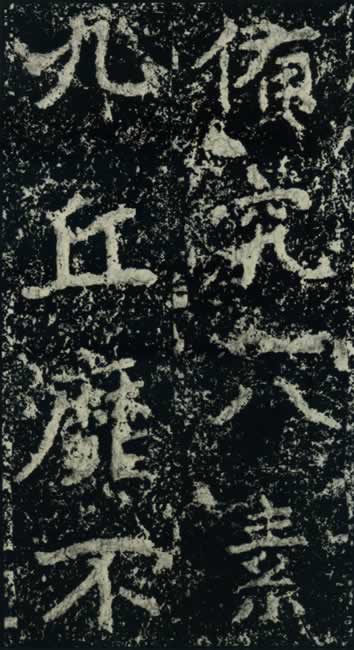 備究八素
九丘靡不